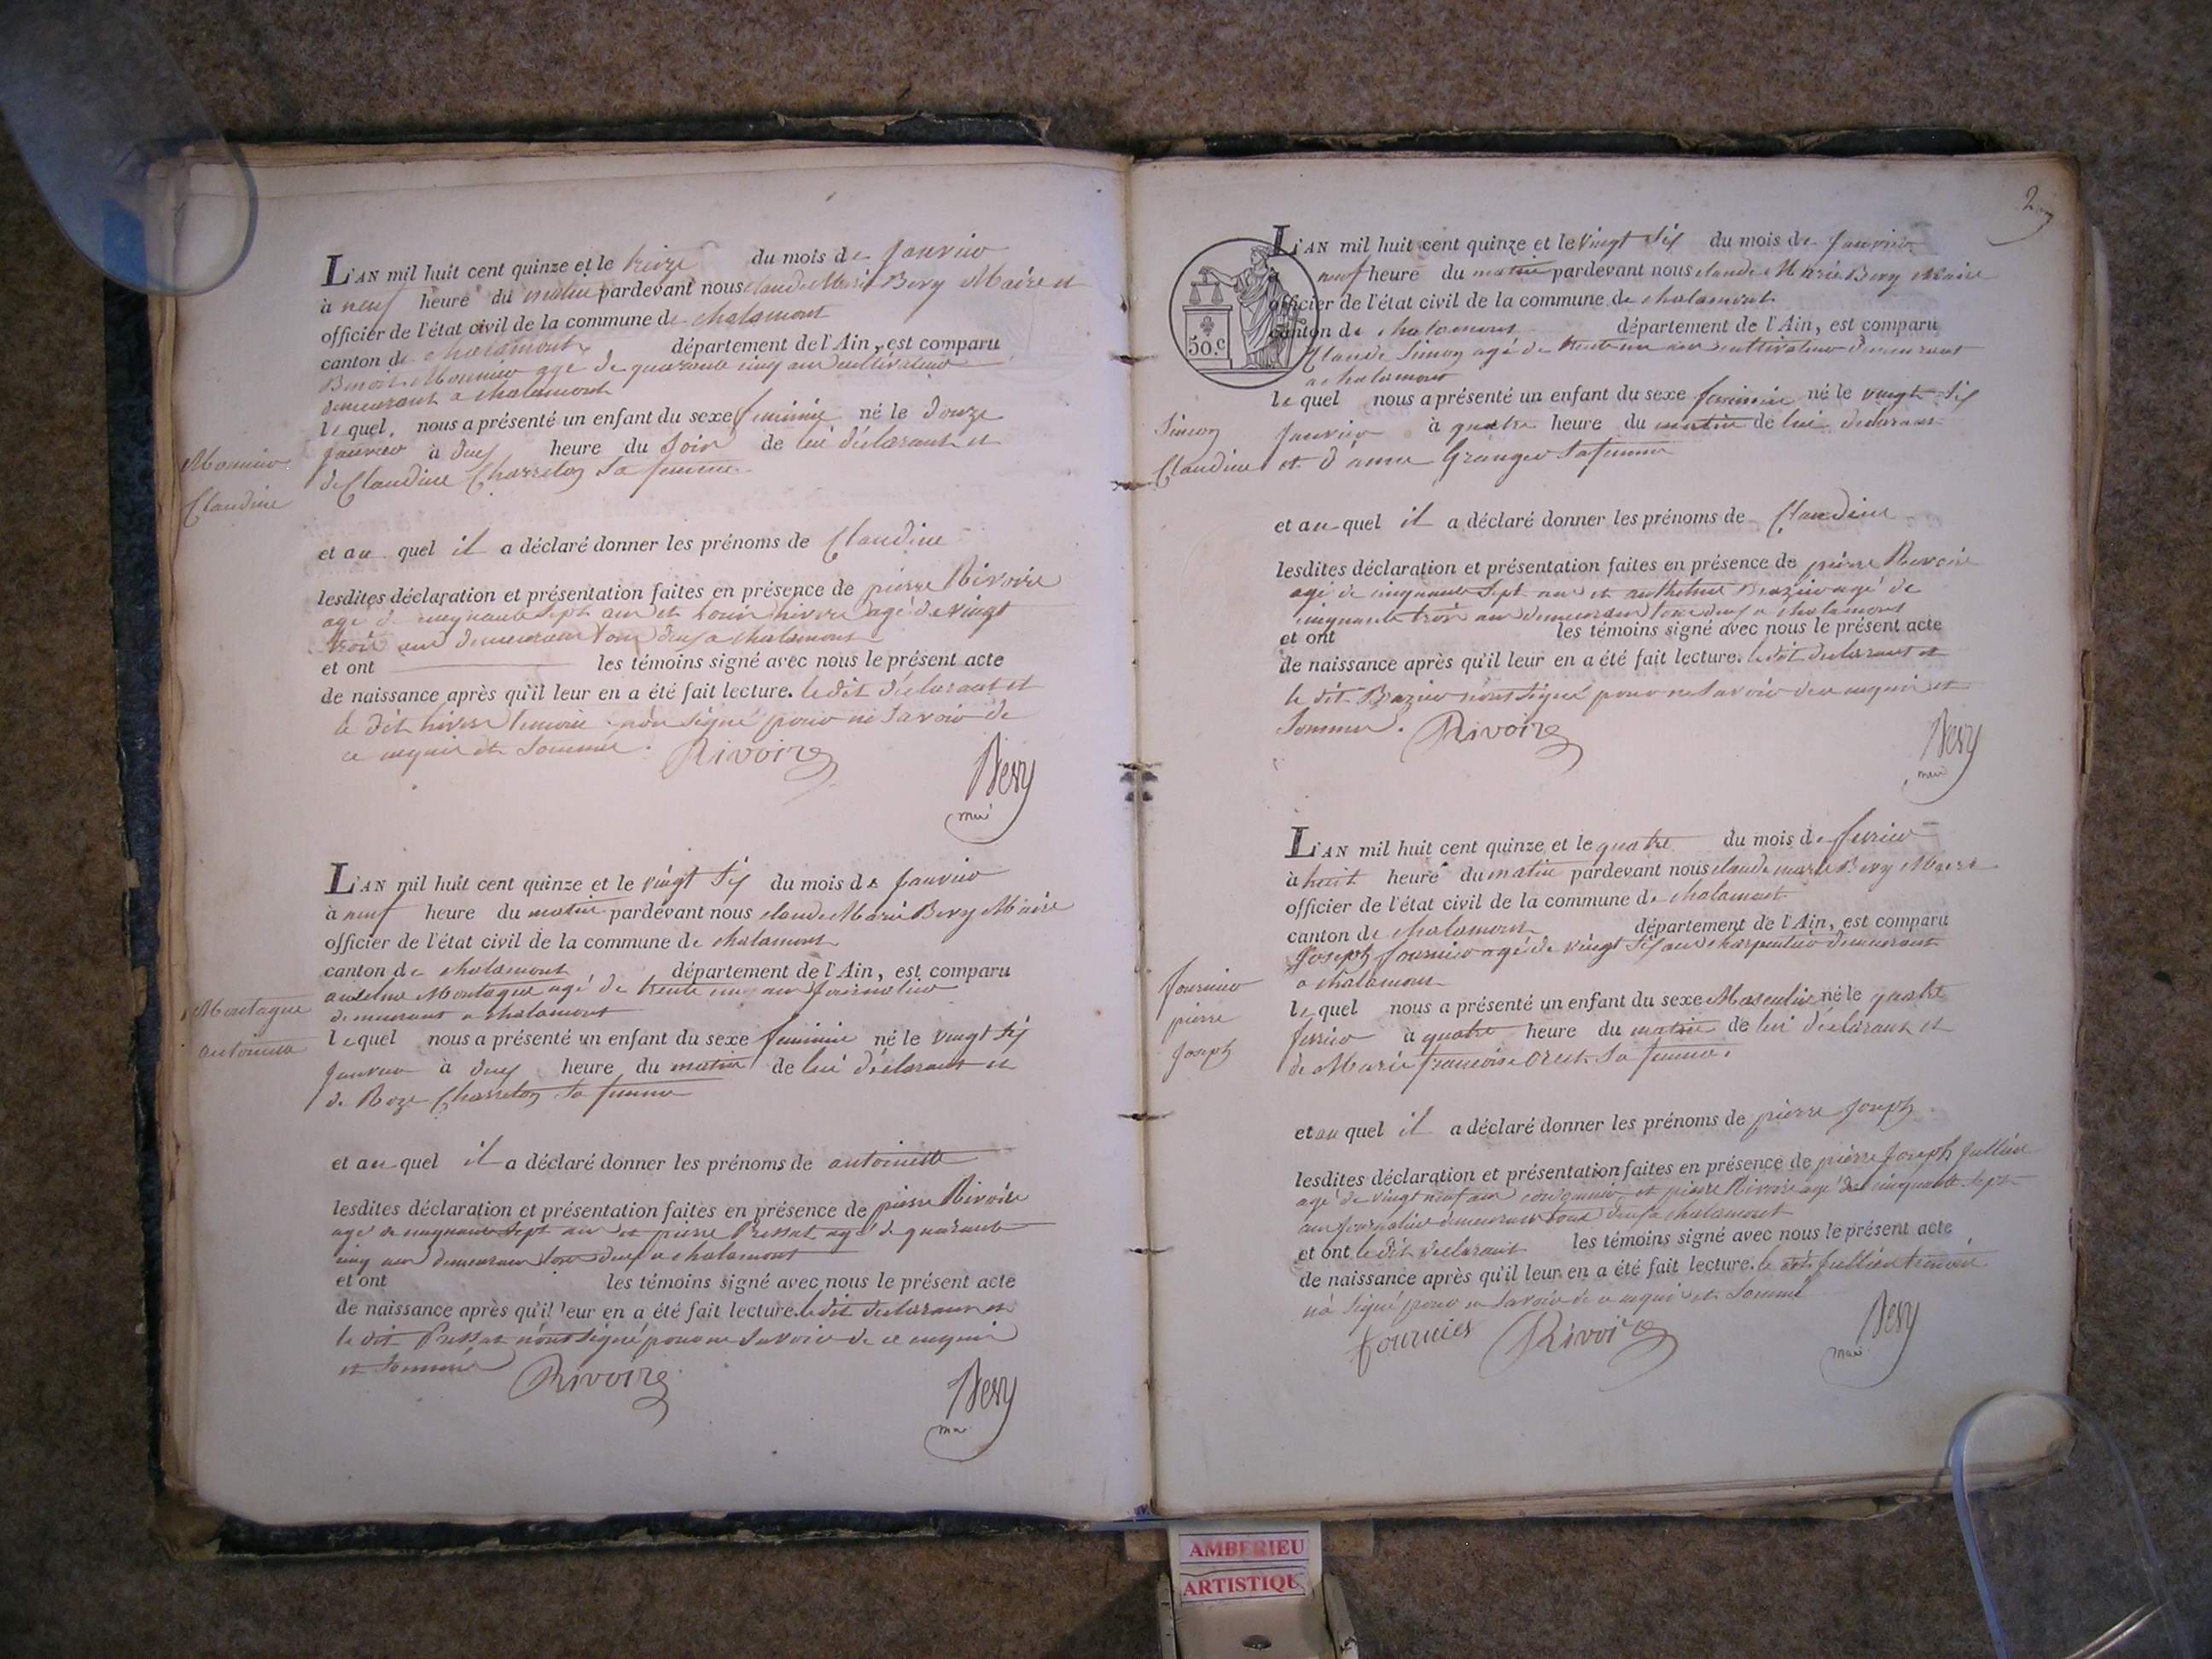 L'AN mil huit cent quinze et le treize du mois de janvier
à neuf heure du matin pardevant nous claude Marie Bery Maire et
officier de l'état civil de la commune de chalamont
canton de chalamont département de l'Ain, est comparu
Benoit Monnier agé de quarante cinq ans cultivateur
demeurant a chalamont
lequel, nous a présenté un enfant du sexe feminin né le douze
janvier à deux heure du soir de lui déclarant et
de Claudine Charreton sa femme
Monnier
Claudine
et au quel il a déclaré donner les prénoms de Claudine
lesdites déclaration et présentation faites en présence de pierre Rivoire
agé de cinquante sept ans et Louis hivere agé de vingt
trois ans demeurans tous deux a chalamont
et ont les témoins signé avec nous le présent acte
de naissance après qu'il leur en a été fait lecture. le dit déclarant et
le dit hivere temoin non signé pour ne savoir de
ce enquis et sommé. Rivoire
Bery
L'AN mil huit cent quinze et le vingt six du mois de janvier
à neuf heure du matin pardevant nous claude Marie Bery Maire
officier de l'état civil de la commune de chalamont
canton de chalamont département de l'Ain, est comparu
anselme Montagne agé de trente un ans journalier
demeurant a chalamont
Montagne
antoinette
lequel nous a présenté un enfant du sexe feminin né le vingt six
janvier à deux heure du matin de lui déclarant et
de Roze Charreton sa femme
et au quel il a déclaré donner les prénoms de antoinette
lesdites déclaration et présentation faites en présence de pierre Rivoire
agé de cinquante sept ans et pierre Pressat agé de quarante
cinq ans demeurans tous deux a chalamont
et ont les témoins signé avec nous le présent acte
de naissance après qu'il leur en a été fait lecture. le dit declarant et
le dit Pressat n'ont signé pour ne savoir de ce enquis
et sommé Rivoire
Bery
2
L'AN mil huit cent quinze et le vingt six du mois de janvier
neuf heure du matin pardevant nous claude Marie Bery Maire
officier de l'état civil de la commune de chalamont
canton de chalamont département de l'Ain, est comparu
50.c
Claude Simon agé de trente un ans cultivateur demeurant
a chalamont
lequel nous a présenté un enfant du sexe feminin né le vingt six
janvier à quatre heure du matin de lui declarant
et d'anne Granger sa femme
Simon
Claudine
et au quel il a déclaré donner les prénoms de Claudine
lesdites déclaration et présentation faites en présence de pierre Rivoire
agé de cinquante sept ans et anthelme Brazier agé de
cinquante trois ans demeurans tous deux a chalamont
et ont les témoins signé avec nous le présent acte
de naissance après qu'il leur en a été fait lecture. le dit declarant et
le dit Brazier n'ont signé pour ne savoir de ce enquis et
sommé. Rivoire
Bery
L'AN mil huit cent quinze et le quatre du mois de fevrier
à huit heure du matin pardevant nous claude marie Bery Maire
officier de l'état civil de la commune de chalamont
canton de chalamont département de l'Ain, est comparu
Joseph fournier agé de vingt six ans charpentier demeurant
a chalamont
fournier
pierre
Joseph
lequel nous a présenté un enfant du sexe Masculin né le quatre
fevrier à quatre heure du matin de lui déclarant et
de Marie francoise sa femme.
et au quel il a déclaré donner les prénoms de pierre Joseph
lesdites déclaration et présentation faites en présence de pierre Joseph Jullien
agé de vingt neuf ans et pierre Rivoire agé de cinquante sept
ans journalier demeurans tous deux a chalamont
et ont le dit declarant les témoins signé avec nous le présent acte
de naissance après qu'il leur en a été fait lecture. le dit Jullien temoin
n'a signé pour ne savoir de ce enquis et sommé
fournier Rivoire
Bery
AMBERIEU
ARTISTIQU